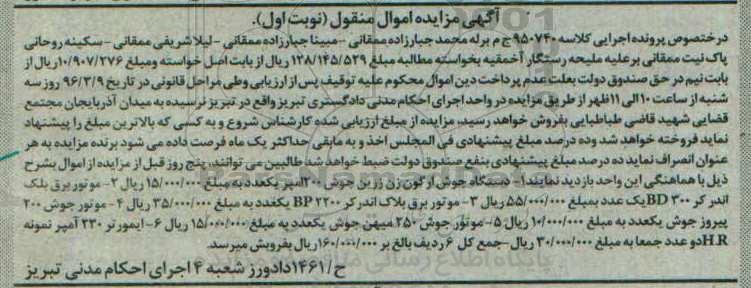 آگهی مزایده اموال منقول (نوبت اول).
درخصوص پرونده اجرایی کلاسه ۹۵۰۷۴۰ ج م برله محمد جبارزاده ممقانی - مبینا جبارزاده ممقانی - لیلا شریفی ممقانی - سکینه روحانی
پاک نیت ممقانی بر علیه ملیحه رستگار آخمقیه بخواسته مطالبه مبلغ ۱۲۸/۱۴۵/۵۲۹ ریال از بابت اصل خواسته ومبلغ ۱۰/۹۰۷/۲۷۶ ریال از
بابت نیم در حق صندوق دولت بعلت عدم پرداخت دین اموال محکوم علیه توقیف پس از ارزیابی وطی مراحل قانونی در تاریخ ۹۶/۳/۹ روز سه
شنبه از ساعت ۱۰ الی ۱۱ ظهر از طریق مزایده در واحد اجرای احکام مدنی دادگستری تبریز واقع در تبریز نرسیده به میدان آذربایجان مجتمع
قضایی شهید قاضی طباطبایی بفروش خواهد رسید، مزایده از مبلغ ارزیابی شده کارشناس شروع و به کسی که بالاترین مبلغ را پیشنهاد
نماید فروخته خواهد شد وده درصد مبلغ پیشنهادی فی المجلس اخذ و به مابقی حداکثر یک ماه فرصت داده می شود برنده مزایده به هر
عنوان انصراف نماید ده درصد مبلغ پیشنهادی بنفع صندوق دولت ضبط خواهد شد طالبین می توانند، پنج روز قبل از مزایده از اموال بشرح
ذیل با هماهنگی این واحد بازدید نمایند ۱- دستگاه جوش آرگون زن زرین جوش ۲۰۰ آمپر یکعدد به مبلغ ۱۵/۰۰۰/۰۰۰ ریال ۲- موتور برق بلک
اندر کر BD ۳۰۰ یک عدد بمبلغ ۵۵/۰۰۰/۰۰۰ ریال ۳- موتور برق بلاک اندر کر BP ۲۲۰۰ یکعدد به مبلغ ۳۵/۰۰۰/۰۰۰ ریال ۴- موتور جوش ۲۰۰
پیروز جوش یکعدد به مبلغ ۱۰/۰۰۰/۰۰۰ ریال ۵- موتور جوش ۲۵۰ میهن جوش یکعدد به مبلغ ۱۵/۰۰۰/۰۰۰ ریال ۶- ایمورتر ۲۳۰ آمپر نمونه
H.R دو عدد جمعا به مبلغ ۳۰/۰۰۰/۰۰۰ ریال - جمع کل ۶ ردیف بالغ بر ۱۶۰/۰۰۰/۰۰۰ ریال بفروش میرسد.
ح/۱۴۶۱ دادورز شعبه ۴ اجرای احکام مدنی تبریز